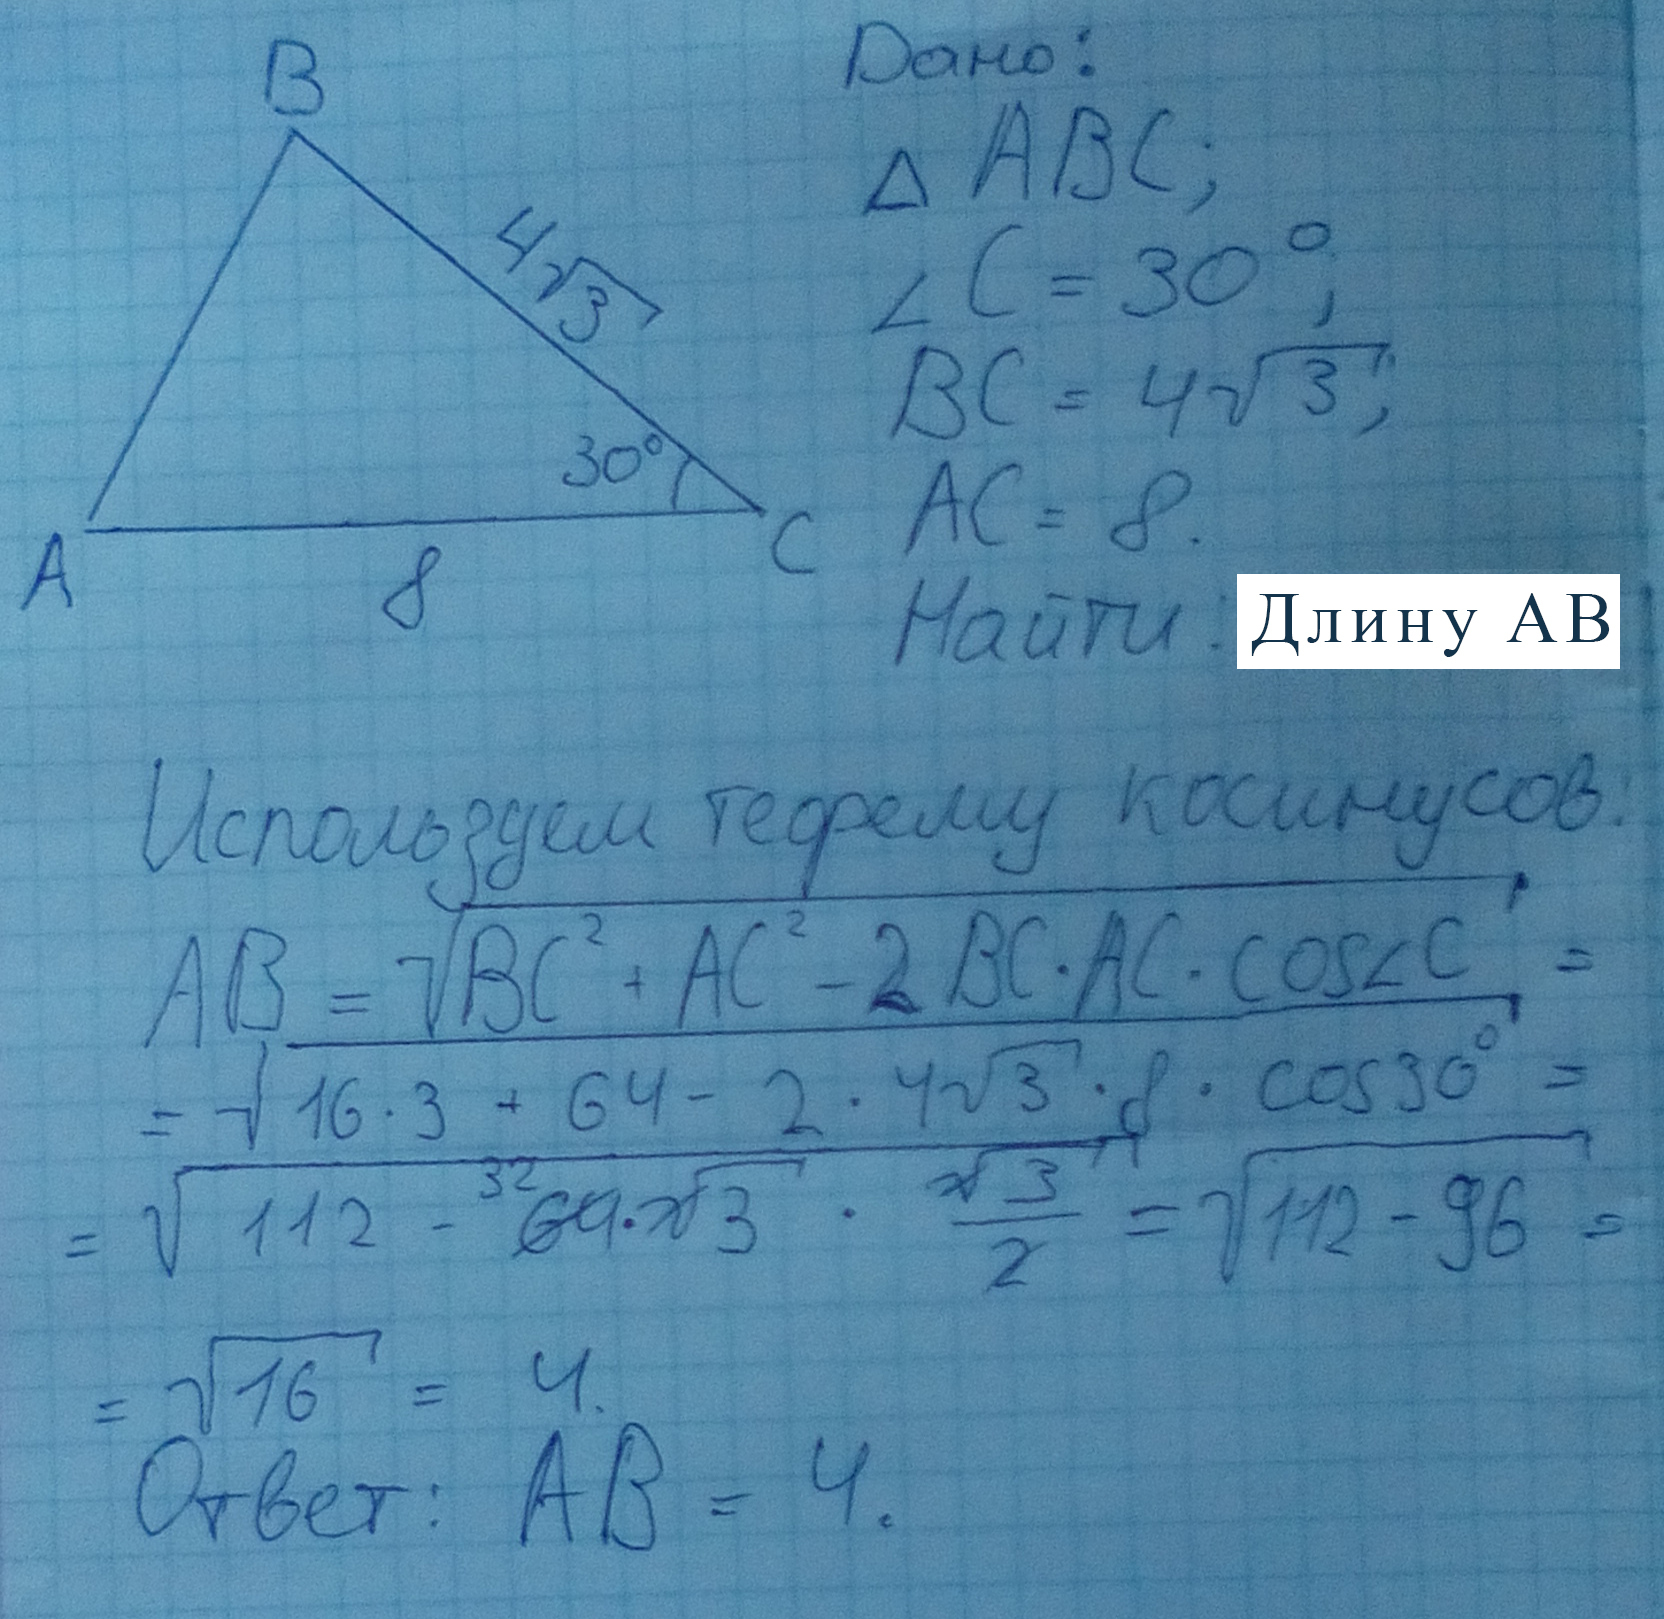 B
4√3
30°
A
8
C
Дано:
△ ABC;
∠C = 30°;
BC = 4√3;
AC = 8.
Найти: Длину АВ
Используем теорему косинусов:
AB = √BC² + AC² - 2 BC · AC · cos∠C =
= √16·3 + 64 - 2 · 4√3 · 8 · cos30° =
= √112 - ³²64·√3 · √3/2 = √112 - 96 =
= √16 = 4.
Ответ: AB = 4.